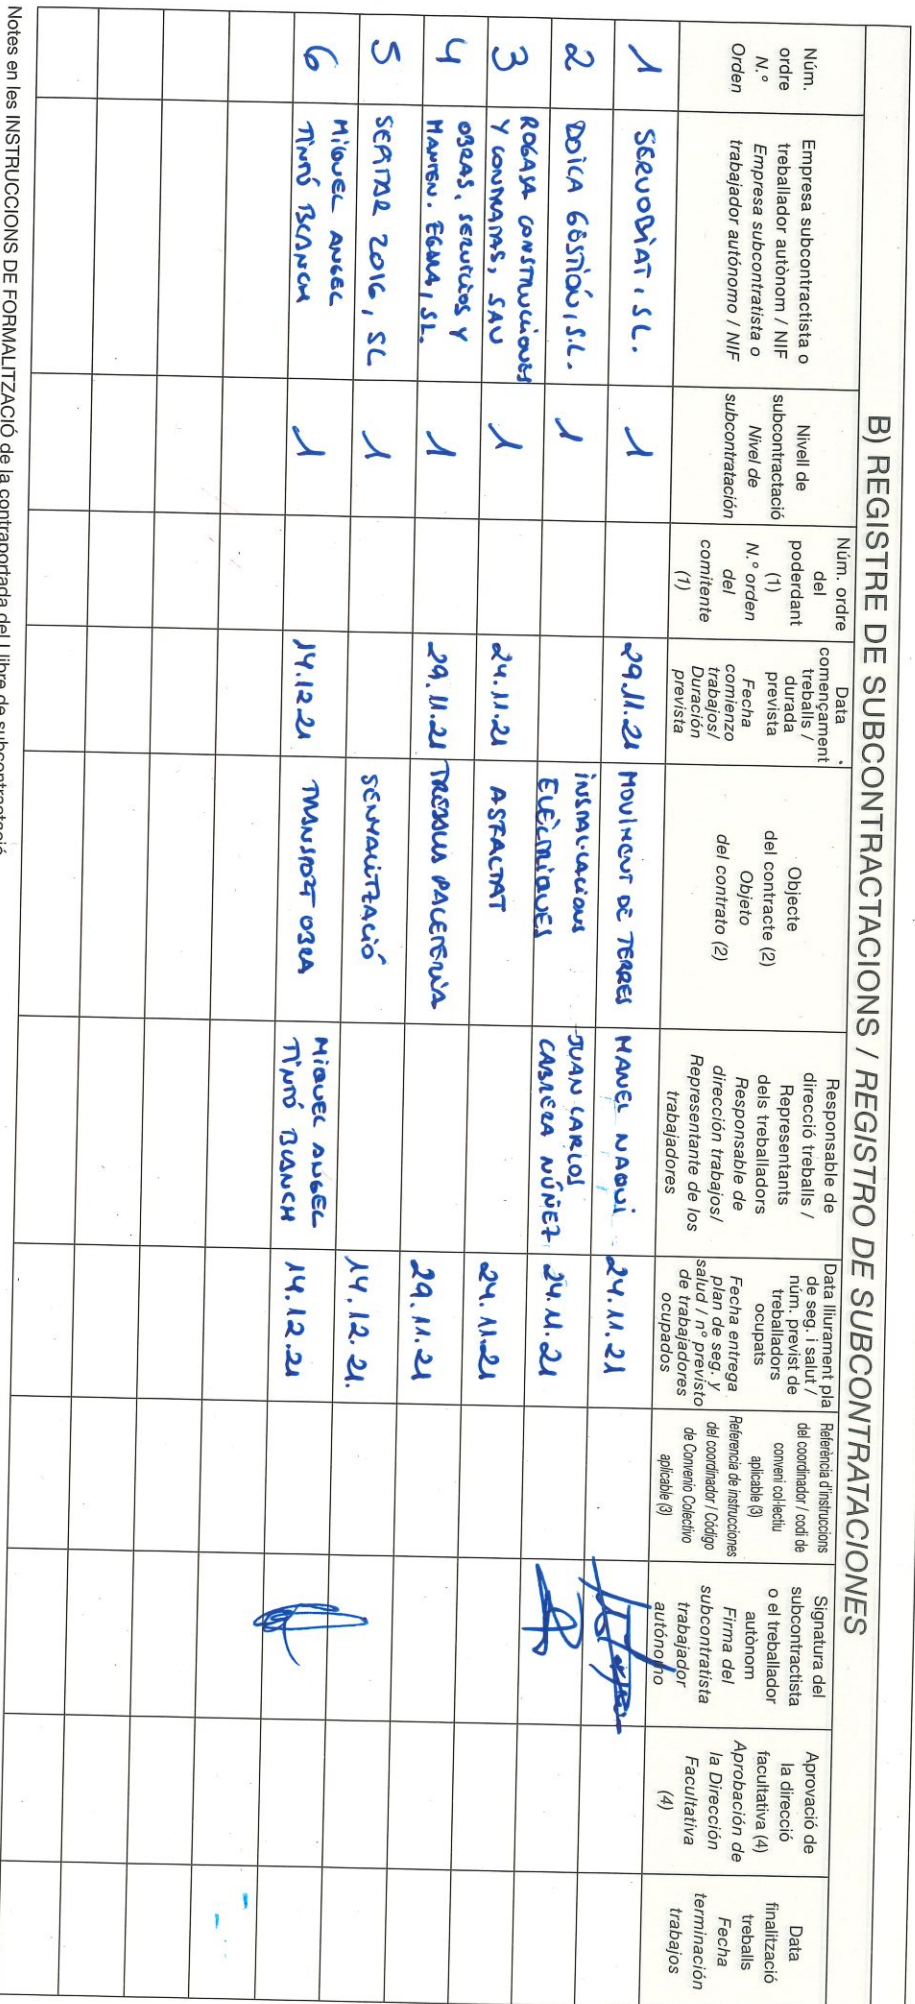 B) REGISTRE DE SUBCONTRACTACIONS / REGISTRO DE SUBCONTRATACIONES
Núm.
ordre
N.º
Orden
Empresa subcontractista o
treballador autònom / NIF
Empresa subcontratista o
trabajador autónomo / NIF
Nivell de
subcontractació
Nivel de
subcontratación
Núm. ordre
del
poderdant
(1)
N.º orden
del
comitente
(1)
Data
començament
treballs /
durada
prevista
Fecha
comienzo
trabajos/
Duración
prevista
Objecte
del contracte (2)
Objeto
del contrato (2)
Responsable de
direcció treballs /
Representants
dels treballadors
Responsable de
dirección trabajos/
Representante de los
trabajadores
Data lliurament pla
de seg. i salut /
núm. previst de
treballadors
ocupats
Fecha entrega
plan de seg. y
salud / nº previsto
de trabajadores
ocupados
Referència d'instruccions
del coordinador / codi de
conveni col·lectiu
aplicable (3)
Referencia de instrucciones
del coordinador / Código
de Convenio Colectivo
aplicable (3)
Signatura del
subcontractista
o el treballador
autònom
Firma del
subcontratista
trabajador
autónomo
Aprovació de
la direcció
facultativa (4)
Aprobación de
la Dirección
Facultativa
(4)
Data
finalització
treballs
Fecha
terminación
trabajos
1 SERVOBIAT, SL. 1 29.11.21 MOVIMENT DE TERRES MANEL NAQUI 24.11.21
2 DOICA GESTIÓN, S.L. 1 INSTAL·LACIONS
ELÈCTRIQUES JUAN CARLOS
CABRERA NÚÑEZ 24.11.21
3 ROGASA CONSTRUCCIONES
Y CONTRATAS, SAU 1 24.11.21 ASFALTAT 24.11.21
4 OBRAS, SERVICIOS Y
MANTEN. EGARA, SL. 1 29.11.21 TREBALLS PALETERIA 29.11.21
5 SEPITAR 2016, SL 1 SENYALITZACIÓ 14.12.21.
6 MIQUEL ANGEL
TINTÓ BLANCH 1 14.12.21 TRANSPORT OBRA MIQUEL ANGEL
TINTÓ BLANCH 14.12.21
Notes en les INSTRUCCIONS DE FORMALITZACIÓ de la contraportada del Llibre de subcontractació